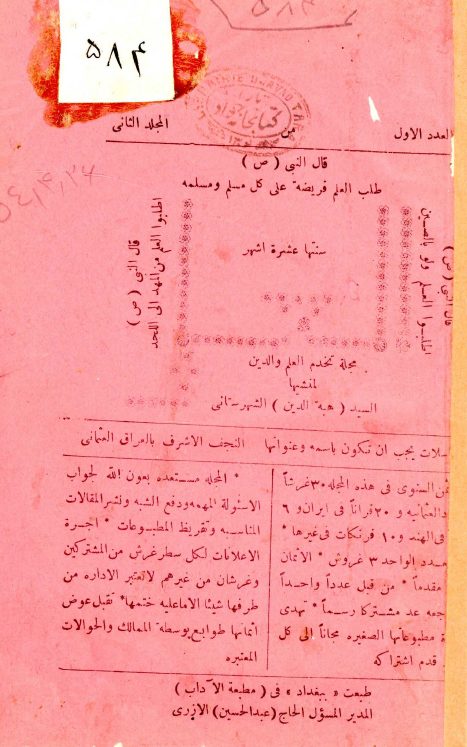 ۵۸۴
۵۸۴
كتابخانه
العدد الاول
من
المجلد الثانى
قال النبي ( ص )
طلب العلم فريضة على كل مسلم ومسلمه
قال النبي ( ص )
اطلبوا العلم ولو بالصين
سنتها عشرة اشهر
قال النبي ( ص )
اطلبوا العلم من المهد الى اللحد
مجلة تخدم العلم والدين
لمنشيها
السيد ( هبة الدين ) الشهرستانى
يجب ان تكون باسمه وعنوانها النجف الاشرف بالعراق العثمانى
السنوى فى هذه المجله ۳۰ غرشاً
و ۲۰ قراناً فى ايران و ٦
فى الهند و ۱۰ فرنكات فى غيرها *
الواحد ۳ غروش * الاثمان
مقدماً * من قبل عدداً واحداً
عد مشتركا رسماً * تهدى
مطبوعاتها الصغيره مجاناً الى كل
قدم اشتراكه
* المجله مستعده بعون الله لجواب
الاسئولة المهمه ودفع الشبه ونشر المقالات
المناسبه وتقريظ المطبوعات * اجرة
الاعلانات لكل سطر غرش من المشتركين
وغرشان من غيرهم لا تعتبر الاداره من
طرفها شيئا الا ما عليه ختمها * تقبل عوض
اثمانها طوابع بوسطة الممالك والحوالات
المعتبره
طبعت « ببغداد » فى ( مطبعة الآداب )
المدير المسؤل الحاج (عبدالحسين) الازرى